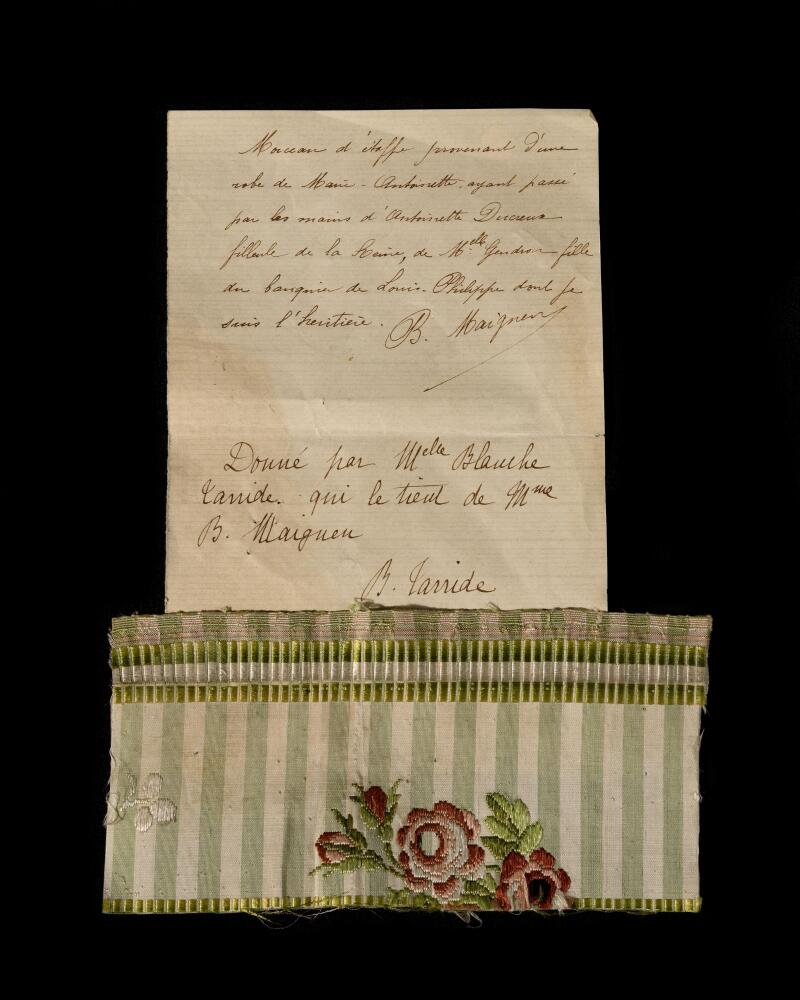 Morceau d'étoffe provenant d'une
robe de Marie-Antoinette ayant passé
par les mains d'Antoinette Ducreux
filleule de la Reine, de Melle Gendron fille
du banquier de Louis-Philippe dont je
suis l'héritière. B. Maignen
Donné par Melle Blanche
Tarride. qui le tient de Mme
B. Maignen
B. Tarride